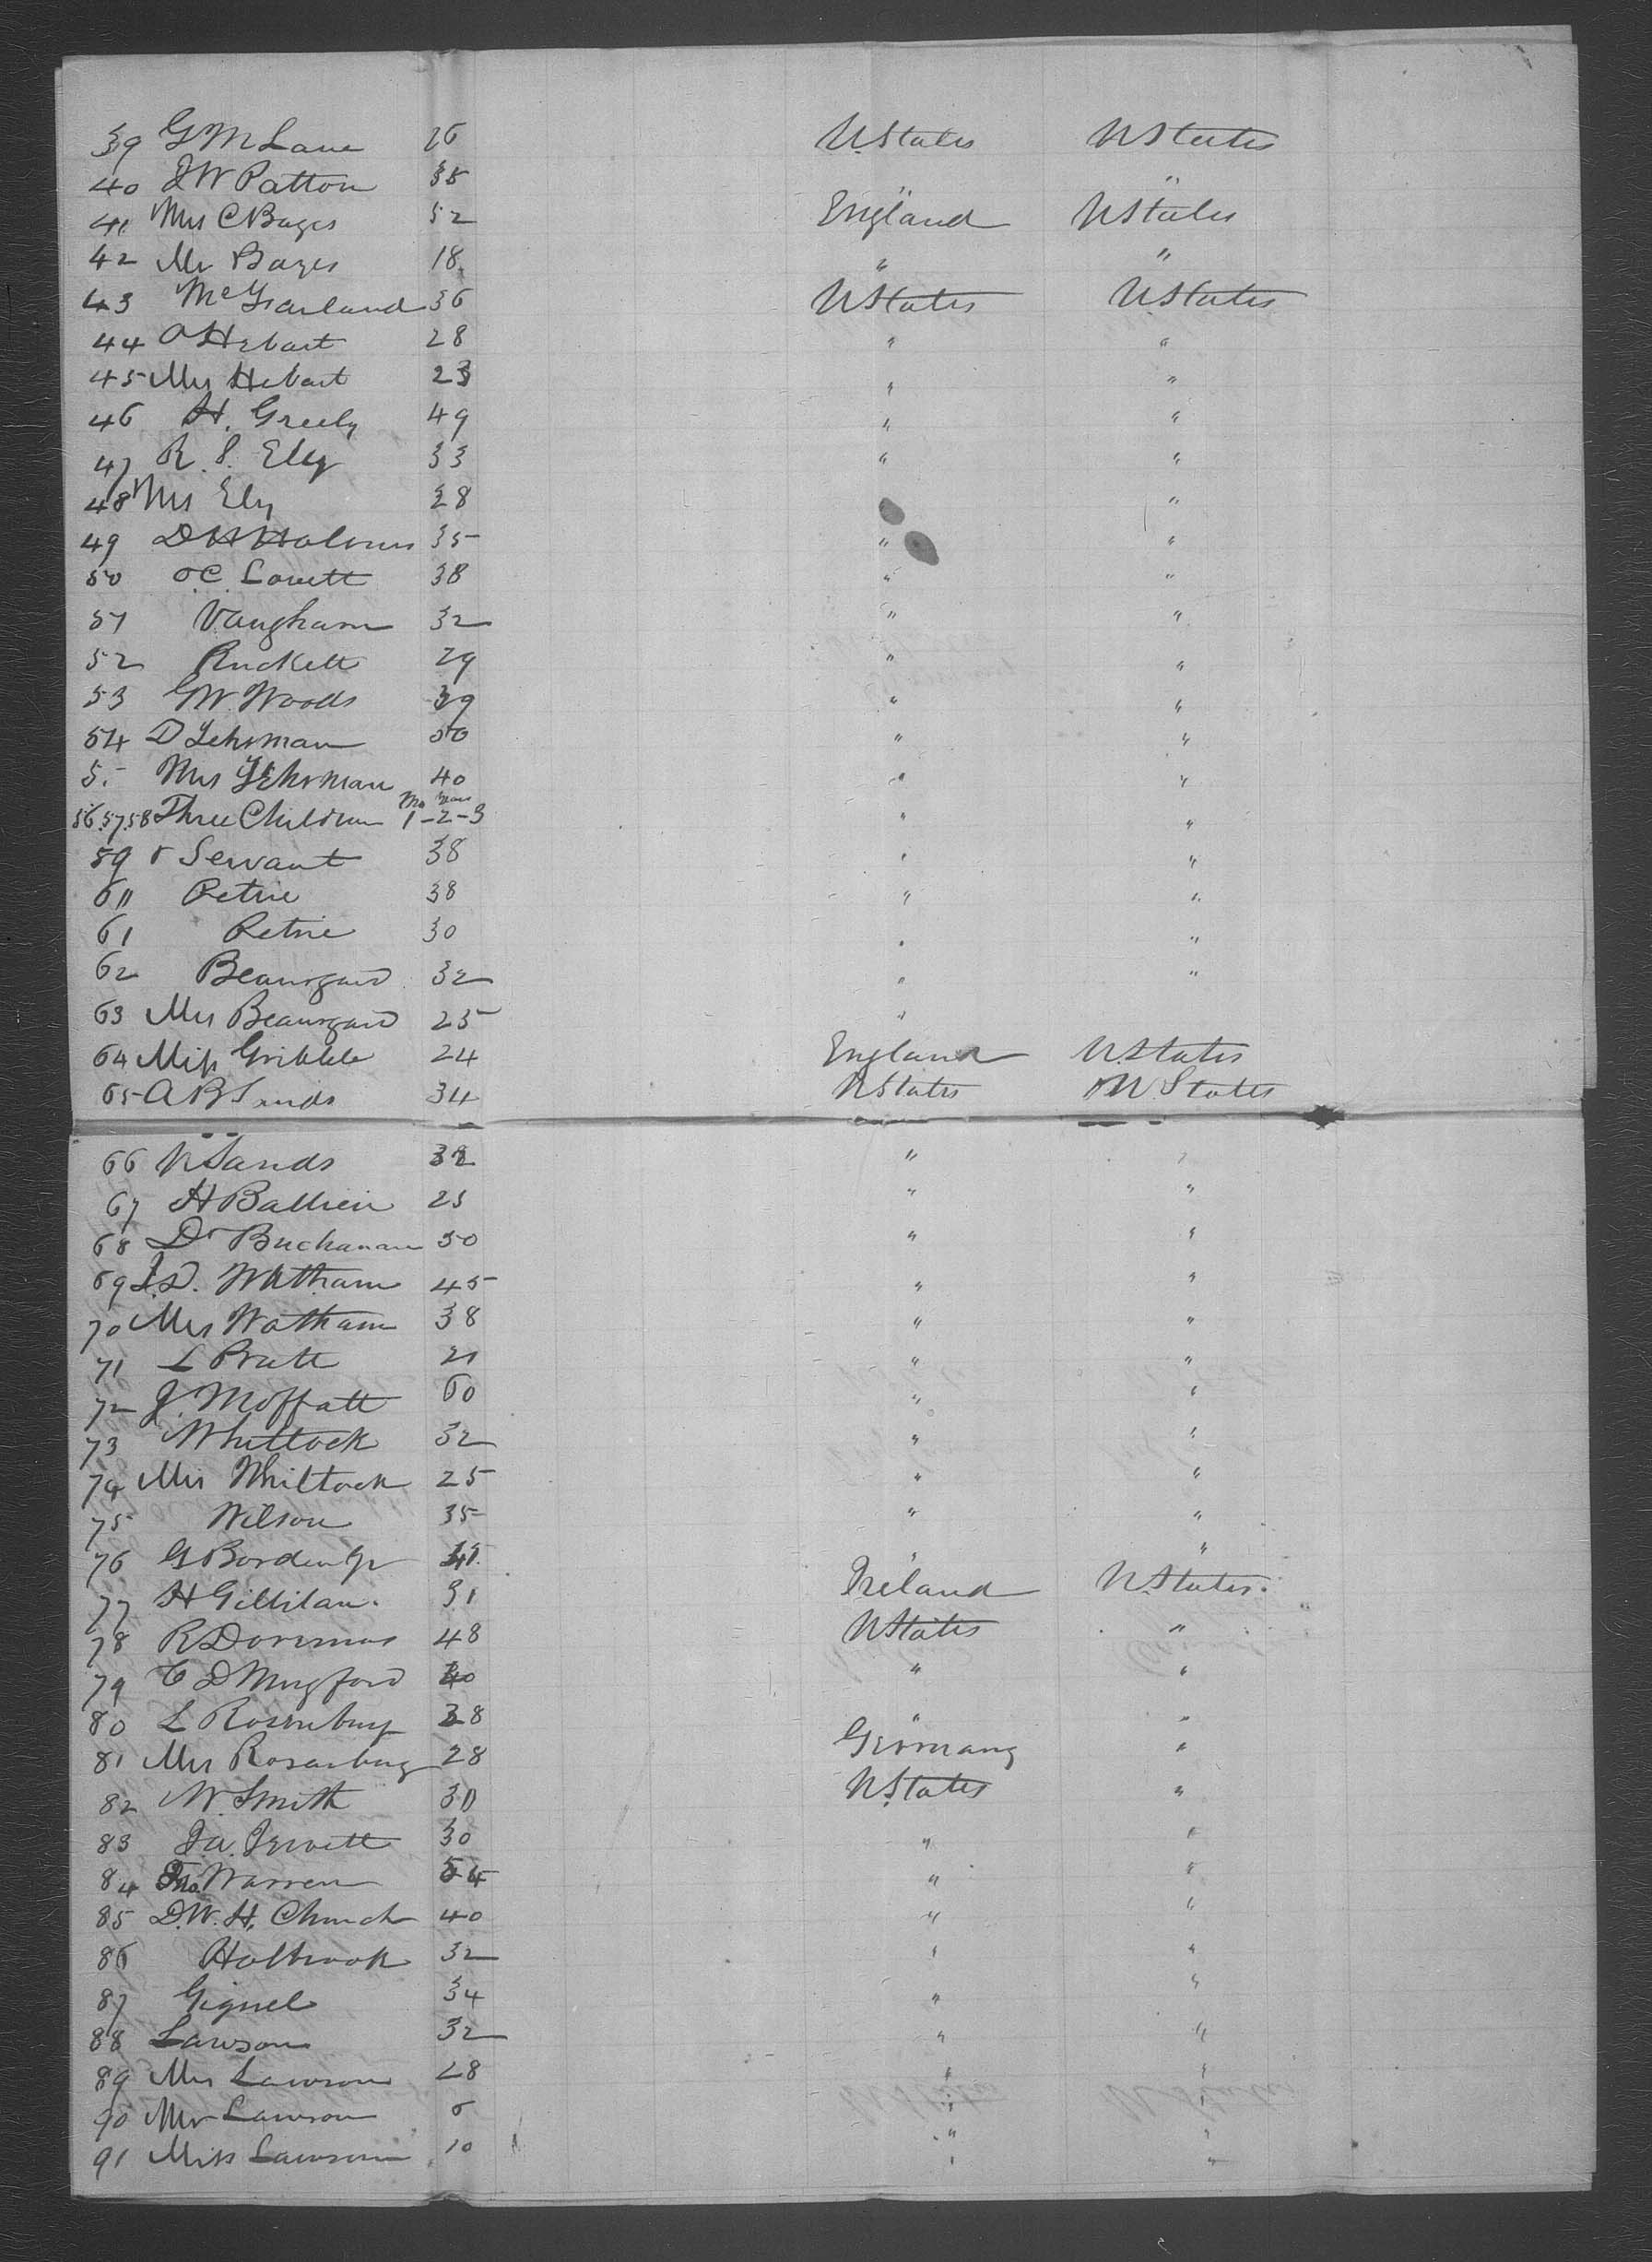 39 G M Lane 26 U States U States
40 J W Patton 35 " "
41 Mrs C Bages 52 England U States
42 Mr Bages 18 " "
43 McGarland 36 U States U States
44 O Hebart 28 " "
45 Mrs Hebart 23 " "
46 H. Greely 49 " "
47 R. S. Ely 33 " "
48 Mrs Ely 28 "
49 D H Holmes 35 " "
50 O.C. Lovett 38 " "
51 Vaugham 32 " "
52 Ruckett 29 " "
53 G W. Woods 39 " "
54 D Lehrman 50 " "
5 Mrs Lehrman 40 " "
Mo Years
56.57.58 Three Children 1-2-3 " "
59 & Servant 38 " "
60 Petrie 38 " "
61 Petrie 30 " "
62 Beauregard 32 " "
63 Mrs Beauregard 25 "
64 Miss Gribble 24 England U States
65 A B Sands 34 U States U States
66 Sands 32 "
67 H Ballien 25 " "
68 Dr Buchanan 50 " "
69 Watham 45 " "
70 Mrs Watham 38 " "
71 L Pratt 21 " "
72 J. Moffatt 60 " "
73 Whittock 32 " "
74 Mrs Whittock 25 " "
75 Wilson 35 " "
76 G Borden Jr " "
77 H Gillilan. 31 Ireland U. States.
78 R Doremus 48 U States "
79 C D Mugford " "
80 L Rosenburg 38 " "
81 Mrs Rosenburg 28 Germany "
82 W. Smith 30 U. States "
83 J. A. Jewett 30 " "
84 Thos Warren 54 " "
85 D. W. H. Church 40 " "
86 Holbrook 32 " "
87 Gignel 34 " "
88 Lawson 32 " "
89 Mrs Lawson 28 " "
90 Mr Lawson 6 " "
91 Miss Lawson 10 " "